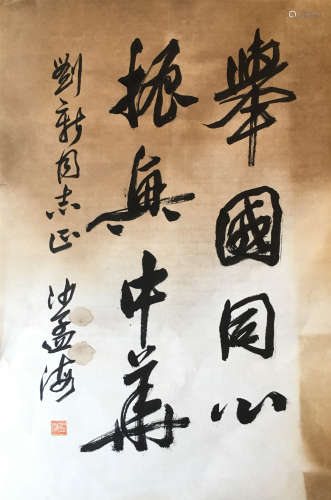 舉國同心
振興中華
劉新同志正
沙孟海